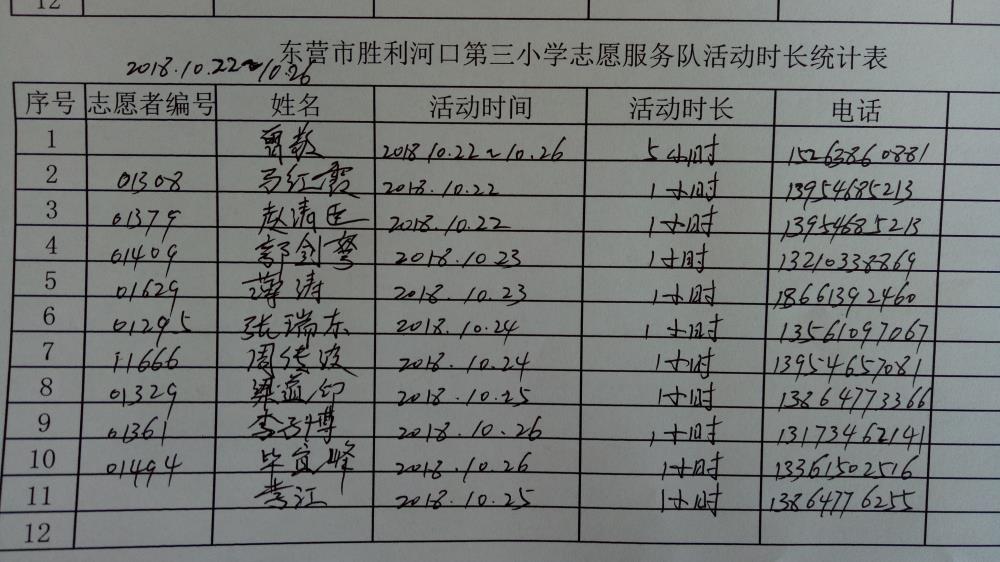 12
东营市胜利河口第三小学志愿服务队活动时长统计表
2018.10.22~10.26
序号 志愿者编号 姓名 活动时间 活动时长 电话
1 2018 10.22~10.26 5小时 15263860881
2 01308 马红霞 2018.10.22 1小时 13954685213
3 01379 赵清臣 2018.10.22 1小时 13954685213
4 01409 郭剑 2018.10.23 1小时 13210338869
5 01629 薄涛 2018.10.23 1小时 18661392460
6 01295 张瑞东 2018.10.24 1小时 13561097067
7 11666 周传波 2018.10.24 1小时 13954657081
8 01329 梁 2018.10.25 1小时 13864773366
9 01361 李 博 2018.10.26 1小时 13173462141
10 01494 毕宜峰 2018.10.26 1小时 13361502516
11 江 2018.10.25 1小时 13864776255
12